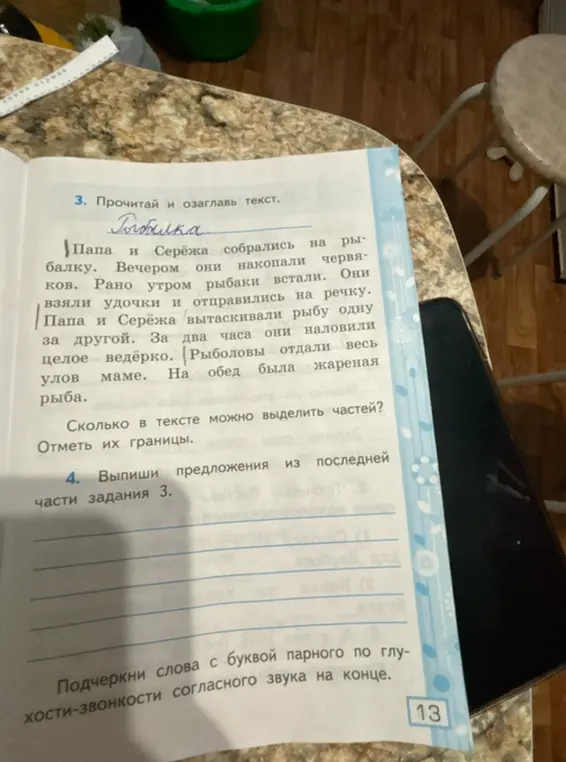 3. Прочитай и озаглавь текст.
Рыбалка
Папа и Серёжа собрались на ры-
балку. Вечером они накопали червя-
ков. Рано утром рыбаки встали. Они
взяли удочки и отправились на речку.
Папа и Серёжа вытаскивали рыбу одну
за другой. За два часа они наловили
целое ведёрко. Рыболовы отдали весь
улов маме. На обед была жареная
рыба.
Сколько в тексте можно выделить частей?
Отметь их границы.
4. Выпиши предложения из последней
части задания 3.
Подчеркни слова с буквой парного по глу-
хости-звонкости согласного звука на конце.
13